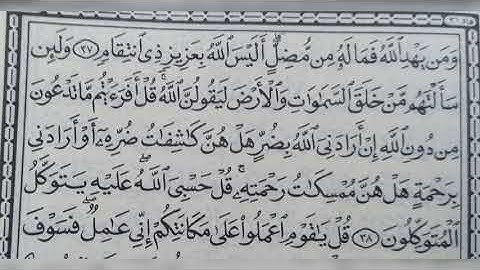 وَمَن يَهْدِ ٱللَّهُ فَمَا لَهُۥ مِن مُّضِلٍّ أَلَيْسَ ٱللَّهُ بِعَزِيزٍ ذِى ٱنتِقَامٍ ٣٧ وَلَئِن
سَأَلْتَهُم مَّنْ خَلَقَ ٱلسَّمَٰوَٰتِ وَٱلْأَرْضَ لَيَقُولُنَّ ٱللَّهُ قُلْ أَفَرَءَيْتُم مَّا تَدْعُونَ
مِن دُونِ ٱللَّهِ إِنْ أَرَادَنِىَ ٱللَّهُ بِضُرٍّ هَلْ هُنَّ كَٰشِفَٰتُ ضُرِّهِۦٓ أَوْ أَرَادَنِى
بِرَحْمَةٍ هَلْ هُنَّ مُمْسِكَٰتُ رَحْمَتِهِۦ قُلْ حَسْبِىَ ٱللَّهُ عَلَيْهِ يَتَوَكَّلُ
ٱلْمُتَوَكِّلُونَ ٣٨ قُلْ يَٰقَوْمِ ٱعْمَلُوا۟ عَلَىٰ مَكَانَتِكُمْ إِنِّى عَٰمِلٌ فَسَوْفَ